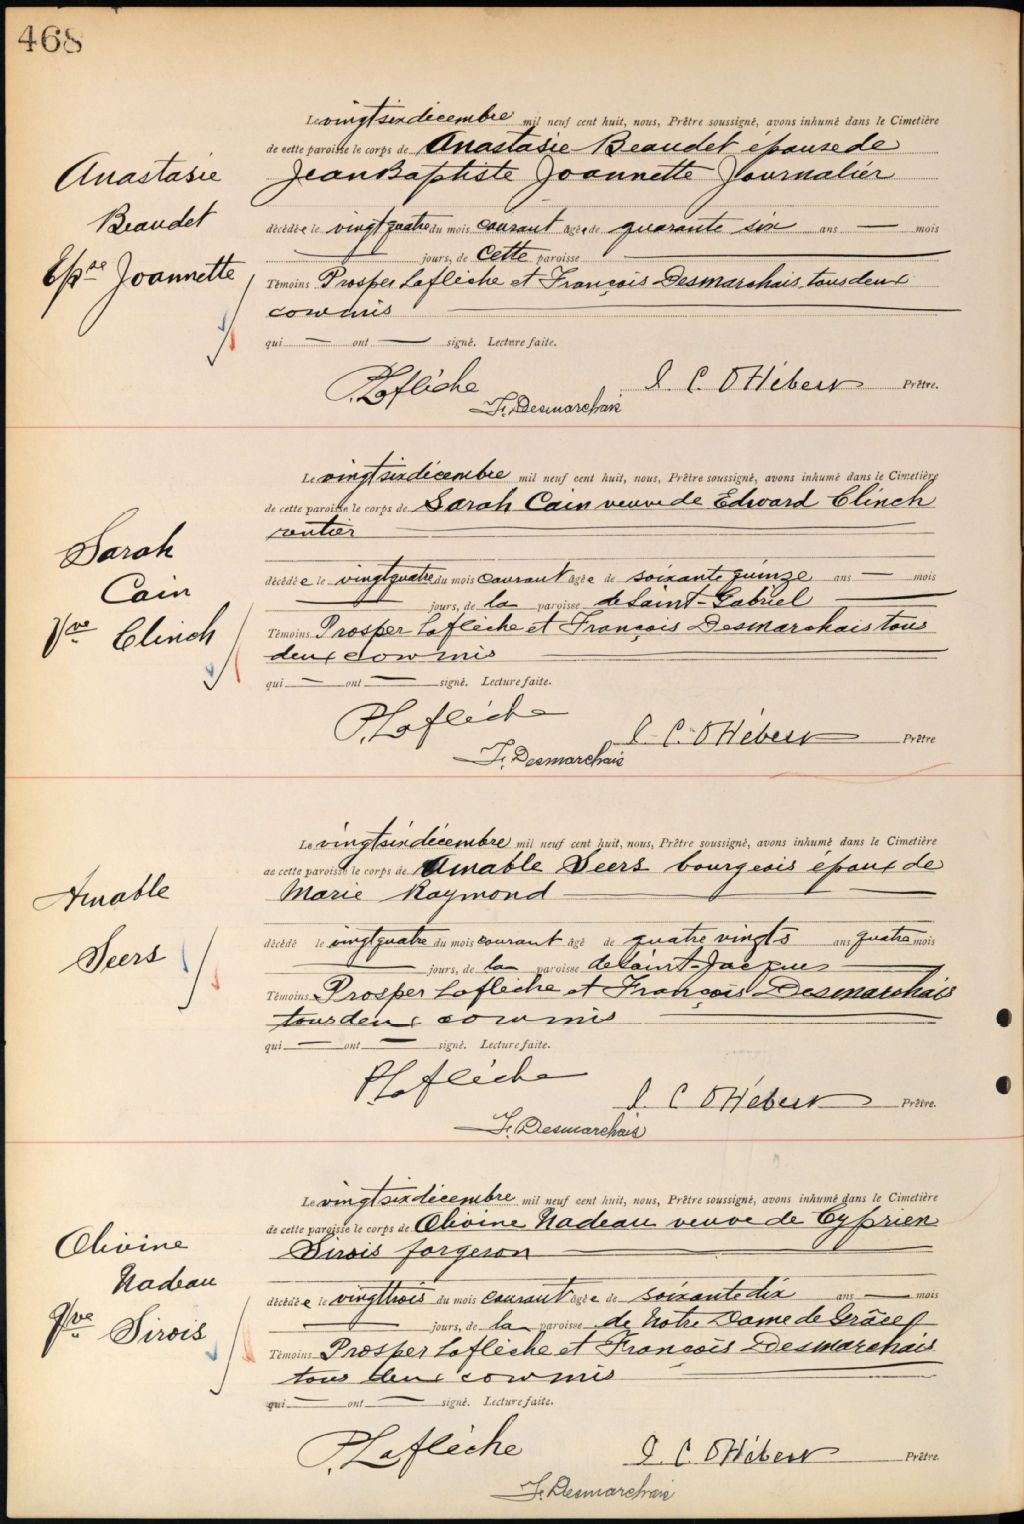 468
Le vingt six décembre mil neuf cent huit, nous, Prêtre soussigné, avons inhumé dans le Cimetière
de cette paroisse le corps de Anastasie Beaudet épouse de
Jean Baptiste Joannette Journalier
Anastasie
Beaudet
Epse Joannette
décédée le vingt quatre du mois courant âgée de quarante six ans — mois
— jours, de cette paroisse —
Témoins Prosper Laflèche et François Desmarchais tous deux
commis
qui — ont — signé. Lecture faite.
P. Laflèche
J. C. O Hébert Prêtre.
F. Desmarchais
Le vingt six décembre mil neuf cent huit, nous, Prêtre soussigné, avons inhumé dans le Cimetière
de cette paroisse le corps de Sarah Cain veuve de Edward Clinch
rentier
Sarah
Cain
Vve Clinch
décédée le vingt quatre du mois courant âgée de soixante quinze ans — mois
— jours, de la paroisse de Saint-Gabriel —
Témoins Prosper Laflèche et François Desmarchais tous
deux commis
qui — ont — signé. Lecture faite.
P. Laflèche
J. C. O Hébert Prêtre
F. Desmarchais
Le vingt six décembre mil neuf cent huit, nous, Prêtre soussigné, avons inhumé dans le Cimetière
de cette paroisse le corps de Amable Seers bourgeois époux de
Marie Raymond
Amable
Seers
décédé le vingt quatre du mois courant âgé de quatre vingts ans quatre mois
— jours, de la paroisse de Saint-Jacques —
Témoins Prosper Laflèche et François Desmarchais
tous deux commis
qui — ont — signé. Lecture faite.
P. Laflèche
J. C O Hébert Prêtre.
F. Desmarchais
Le vingt six décembre mil neuf cent huit, nous, Prêtre soussigné, avons inhumé dans le Cimetière
de cette paroisse le corps de Olivine Nadeau veuve de Cyprien
Sirois forgeron
Olivine
Nadeau
Vve Sirois
décédée le vingt trois du mois courant âgée de soixante dix ans — mois
— jours, de la paroisse de Notre Dame de Grâce
Témoins Prosper Laflèche et François Desmarchais
tous deux commis
qui — ont — signé. Lecture faite.
P. Laflèche
J. C. O Hébert Prêtre.
F. Desmarchais